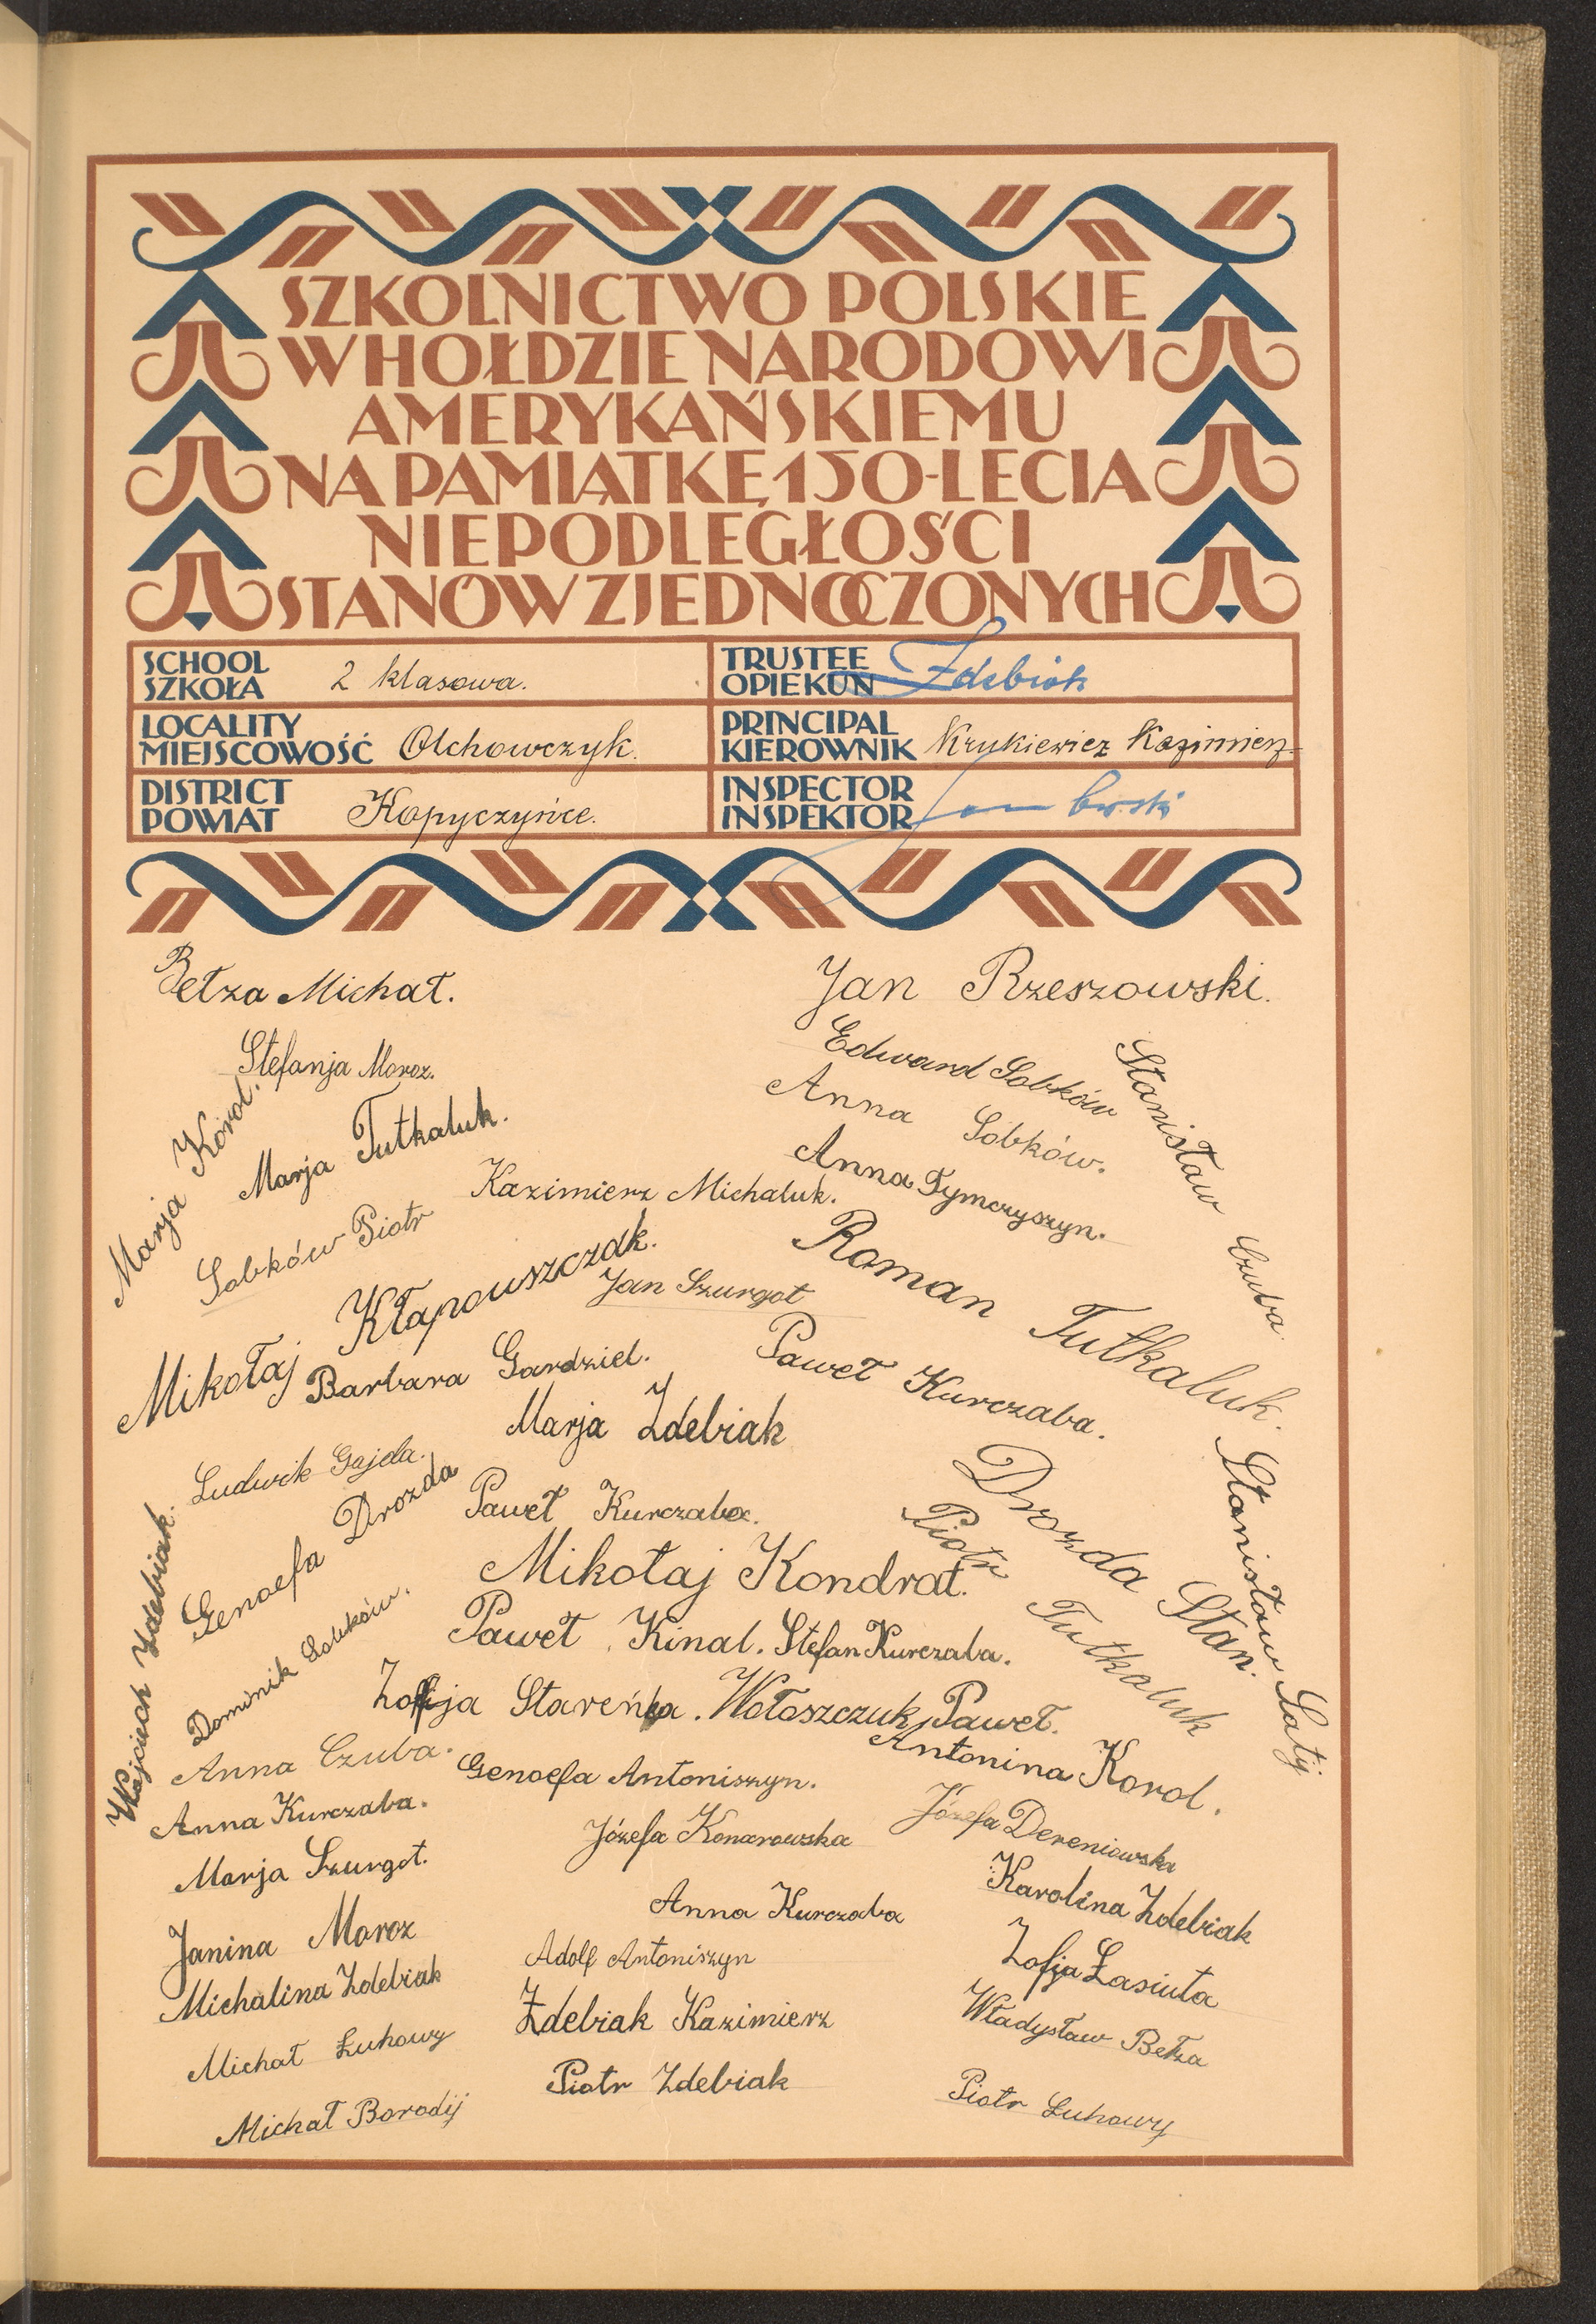 SZKOLNICTWO POLSKIE
W HOŁDZIE NARODOWI
AMERYKAŃSKIEMU
NA PAMIĄTKĘ 150-LECIA
NIEPODLEGŁOŚCI
STANÓW ZJEDNOCZONYCH
SCHOOL
SZKOŁA
2 klasowa.
TRUSTEE
OPIEKUN
Zdebiak
LOCALITY
MIEJSCOWOŚĆ
Olchowczyk.
PRINCIPAL
KIEROWNIK
Krukiewicz Kazimierz
DISTRICT
POWIAT
Kopyczyńce.
INSPECTOR
INSPEKTOR
Bełza Michał.
Jan Rzeszowski.
Stefanja Moroz.
Edward Sobków
Stanisław Czuba
Marja Koról.
Marja Tutkaluk.
Anna Sobków.
Anna Tymczyszyn.
Kazimierz Michaluk.
Sobków Piotr
Roman Tutkaluk.
Mikołaj Kłapouszczak.
Jan Szurgot
Barbara Gardziel.
Paweł Kurczaba.
Marja Zdebiak
Ludwik Gajda.
Drozda Stan.
Stanisław Saty
Genoefa Drozda
Paweł Kurczaba.
Piotr Tutkaluk
Wojciech Zdebiak.
Mikołaj Kondrat.
Dominik Sobków.
Paweł Kinal. Stefan Kurczaba.
Zofija Stareńka. Wołoszczuk Paweł.
Anna Czuba.
Antonina Korol.
Genoefa Antoniszyn.
Anna Kurczaba.
Józefa Konarowska
Józefa Dereniowska
Marja Szurgot.
Karolina Zdebiak
Anna Kurczaba
Janina Moroz
Adolf Antoniszyn
Zofja Łasiuta
Michalina Zdebiak
Zdebiak Kazimierz
Władysław Bełza
Michał Łuhowy
Piotr Zdebiak
Piotr Łuhowy
Michał Borodij